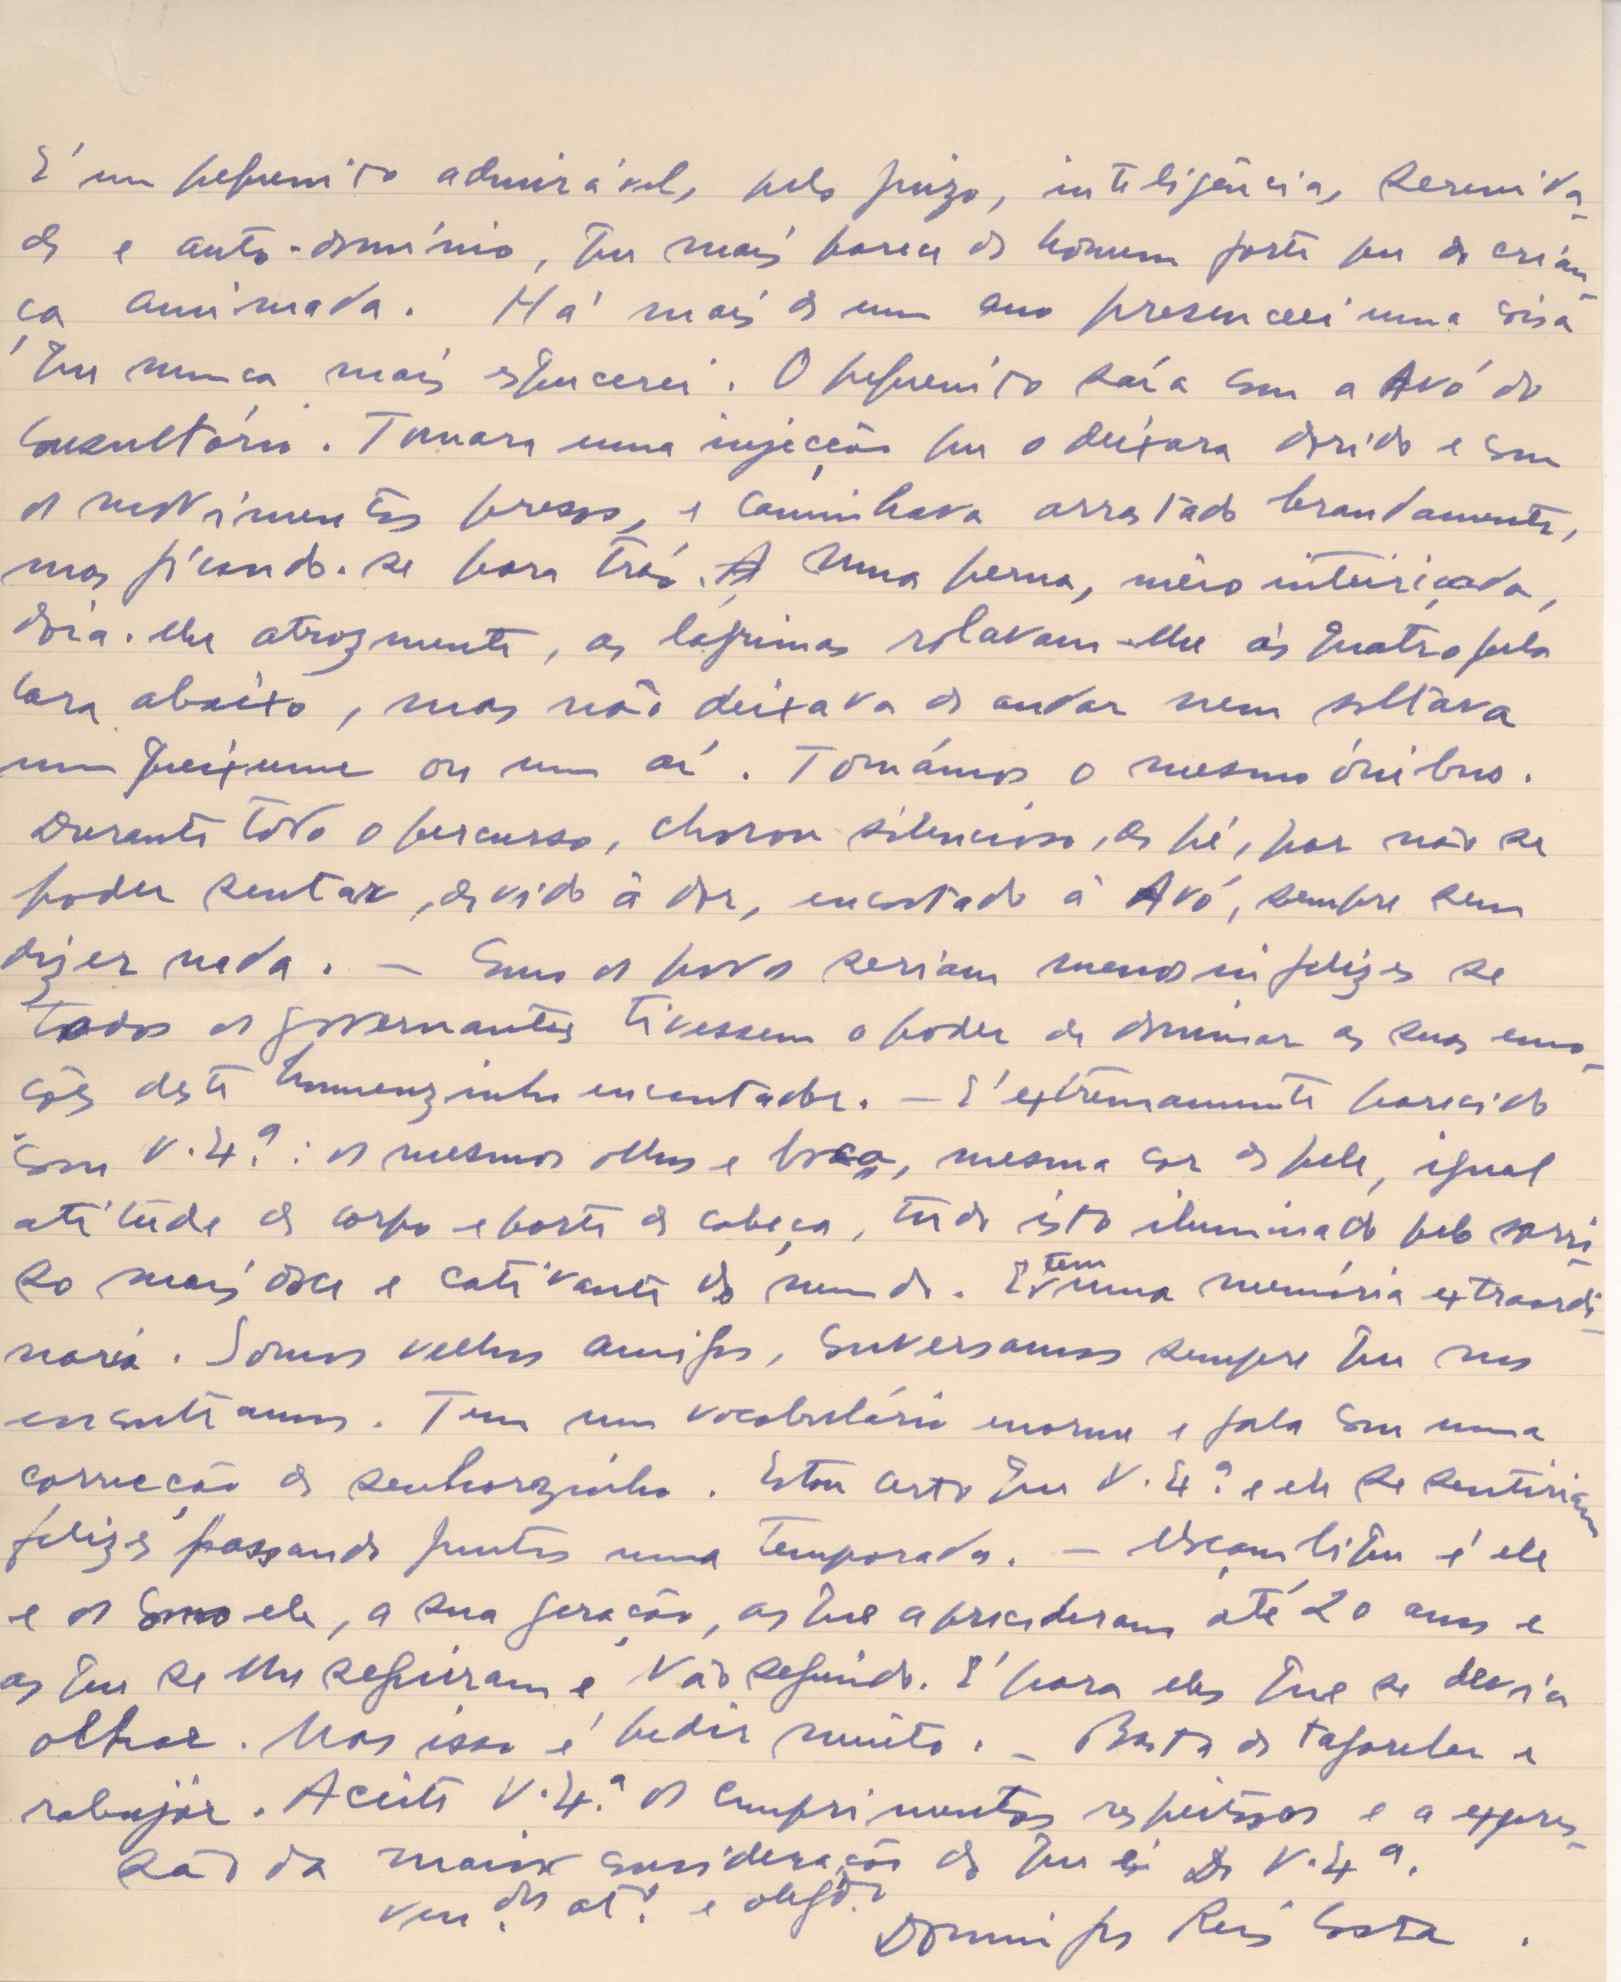 É um pequenito admirável, pelo juizo, inteligência, serenida-
de e auto-domínio, que mais parece de homem forte que de crian-
ça amimada. Há mais de um ano presenceei uma coisa
que nunca mais esquecerei. O pequenito saía com a Avó do
consultório. Tomara uma injecção que o deixara dorido e com
os movimentos presos, e caminhava arrastado brandamente,
mas ficando-se para trás. A uma perna, meio inteiriçada,
doía-lhe atrozmente, as lágrimas rolavam-lhe às quatro pela
cara abaixo, mas não deixava de andar nem soltava
um queixume ou um ai. Tomámos o mesmo ónibus.
Durante todo o percurso, chorou silencioso, de pé, por não se
poder sentar, devido à dor, encostado à Avó, sempre sem
dizer nada. — Como os povos seriam menos infelizes se
todos os governantes tivessem o poder de dominar as suas emo-
ções deste homenzinho encantador. — É extremamente parecido
com V. Ex.ª: os mesmos olhos e boca, mesma cor de pele, igual
atitude de corpo e porte de cabeça, tudo isto iluminado pelo sorri-
so mais doce e cativante do mundo. E tem uma memória extraordi-
nária. Somos velhos amigos, conversamos sempre que nos
encontramos. Tem um vocabulário enorme e fala com uma
correcção de senhorzinho. Estou certo que V. Ex.ª e ele se sentiriam
felizes passando juntos uma temporada. — é ele
e os como ele, a sua geração, as que a precederam até 20 anos e
as que se lhe seguiram e vão seguindo. É para eles que se devia
olhar. Mas isso é pedir muito. — Basta de tagarelar e
rabujar. Aceite V. Ex.ª os cumprimentos respeitosos e a expres-
são da maior consideração de quem é De V. Ex.ª.
ven.dor at.º e obgd.º
Domingos Reis Costa.